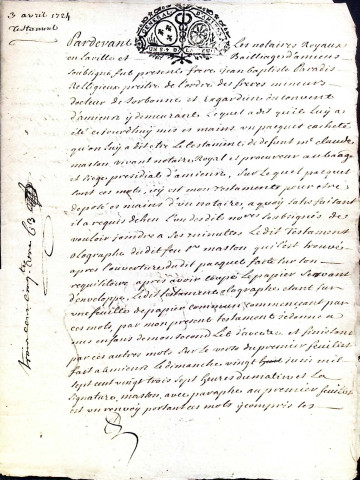 3 avril 1724
Testament
Pardevant Les notaires Royaux
en La ville et Bailliage d'amiens
soubsignés fut presents frere Jean baptiste Paradis
Religieux prestre de l'ordre des freres mineurs
docteur de Sorbonne et gardien du couvent
d'amiens y demeurant. Lequel a dit qu'il Luy a
été cejourdhuy mis es mains un pacquet cacheté
qu'on luy a dit etre Le testament de defunt me claude
masson vivant notaire Royal et procureur au bailliage
et siege presidial d'amiens, sur Lequel pacquet
sont ces mots, icy est mon testament pour etre
deposé es mains d'un notaire, a quoy satisfaisant
il a requis deheu L'un desdits nores soubsignés de
vouloir joindre a ses minutes Ledit Testament
olographe dudit feu sr masson qui s'est trouvé
apres l'ouverture dudit pacquet faite sur son
requisitoire, apres avoir coupé Le papier servant
d'enveloppe, Ledit testament olographe etant sur
une feuille de papier commun commençant par
ces mots, par mon present testament je donne a
mes enfans de mon second Lit et finissant
par ces autres mots sur le verso du premier feuillet
fait a amiens Le dimanche vingt huit mil
sept cent vingt trois sept heures du matin et La
signature, masson, avec paraphe au premier feuillet
est un renvoy portant ces mots y compris les